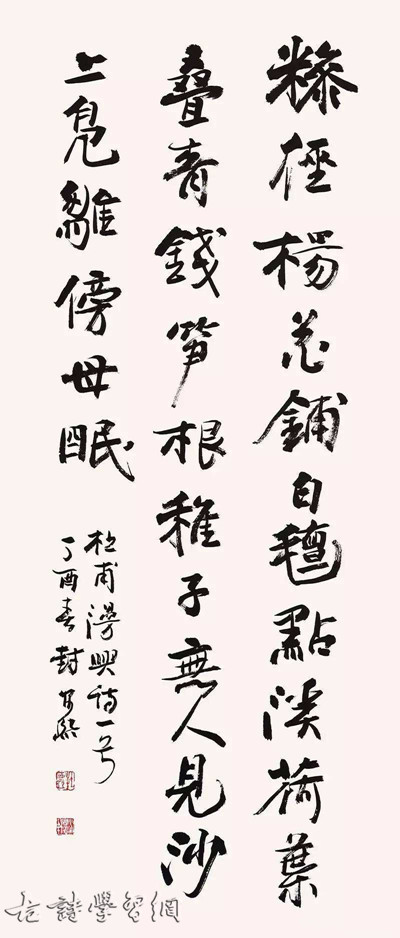 糝徑楊花鋪白氈點溪荷葉
疊青錢笋根稚子無人見沙
上鳧雛傍母眠
杜甫漫興詩一首
丁酉春封
學智網